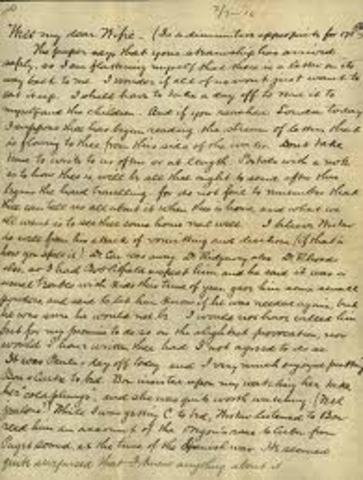 Well my dear Wifie - (Is a diminutive appropriate for
The paper says that your steamship has arrived
safely, so I am flattering myself that there is a letter on its
way back to me. I wonder if all of us won't just want to
eat it up. I shall have to take a day off to read it to
myself and the children. And if you reached London today
I suppose thee has begun reading the stream of letters that
is flowing to thee from this side of the water. Don't take
time to write to us often or at length. Postals with a note
as to how thee is will be all that ought to come after thee
begins the hard travelling. for do not fail to remember that
thee can tell us all about it when thee is home, and what we
all want is to see thee come home real well. I believe
is well from his attack of vomiting and diarhoea (if that is
how you spell it) Dr Carr was away Dr Ridgway also Dr Rhoads
also, so I had inspect him and he said it was a
usual trouble with kids this time of year gave him some small
powders and said to let him know if he was needed again, but
he was sure he would not be. I would not have called him
but for my promise to do so on the slightest provocation, nor
would I have written thee had I not agreed to do so.
It was day off today and I very much enjoyed putting
to bed. Bon insisted upon my watching her take
her "cold plunge", and she was quite worth watching. (
While I was getting C to bed, listened to Bon
read him an account of the Oregon's race to Cuba from
Puget Sound, at the time of the Spanish war. He seemed
quite surprised that I knew anything about it